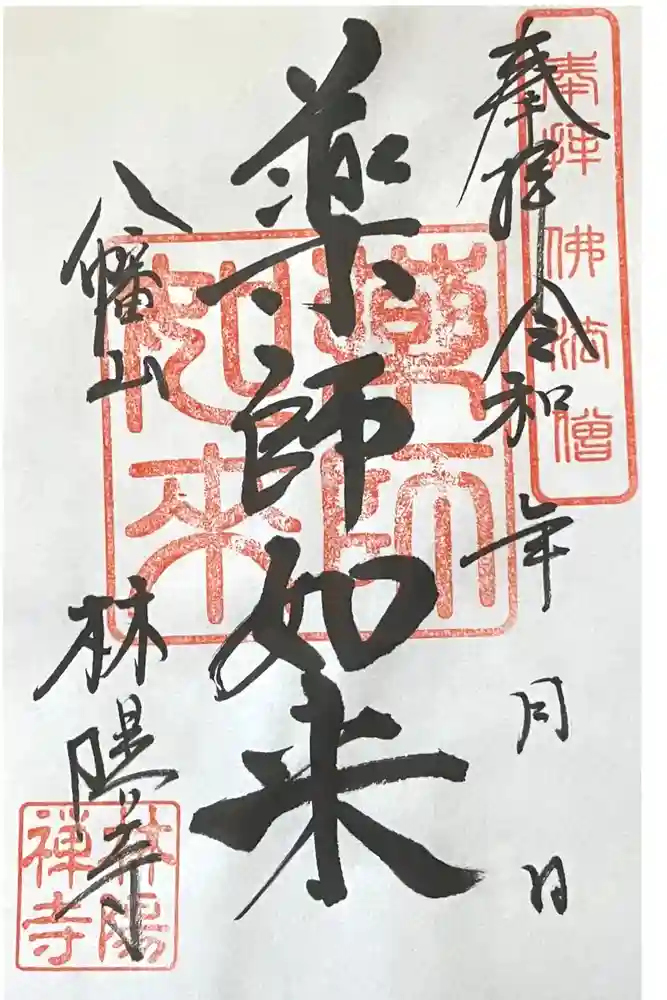 奉拝 令和 年 月 日
奉拝佛法僧
薬師如来
薬師
如来
八幡山 林陽寺
林陽
禅寺